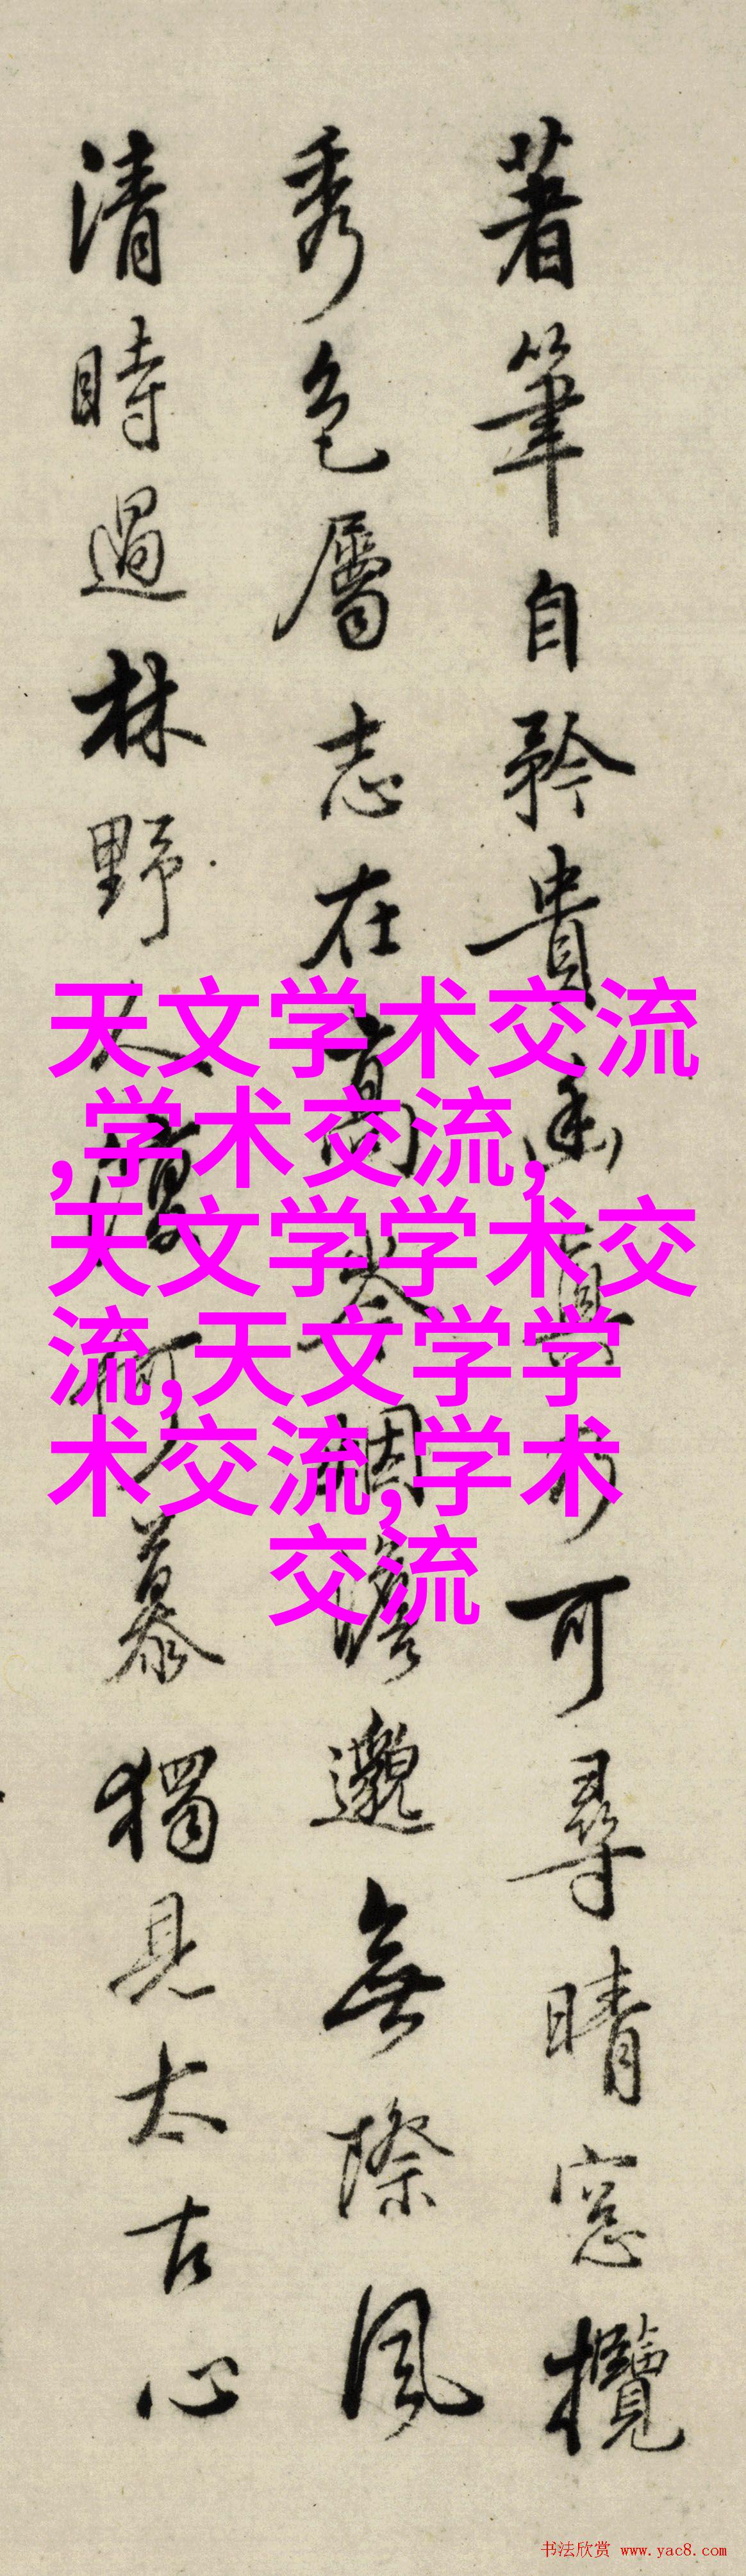 著筆自矜貴幽真可尋晴窓攬
秀色屬志在高岑烟澹邈無際風
清時過林野人何慕獨見太古心
天文学术交流
,学术交流,
天文学学术交
流,天文学学
术交流,学术
交流
书法欣赏 www.yac8.com